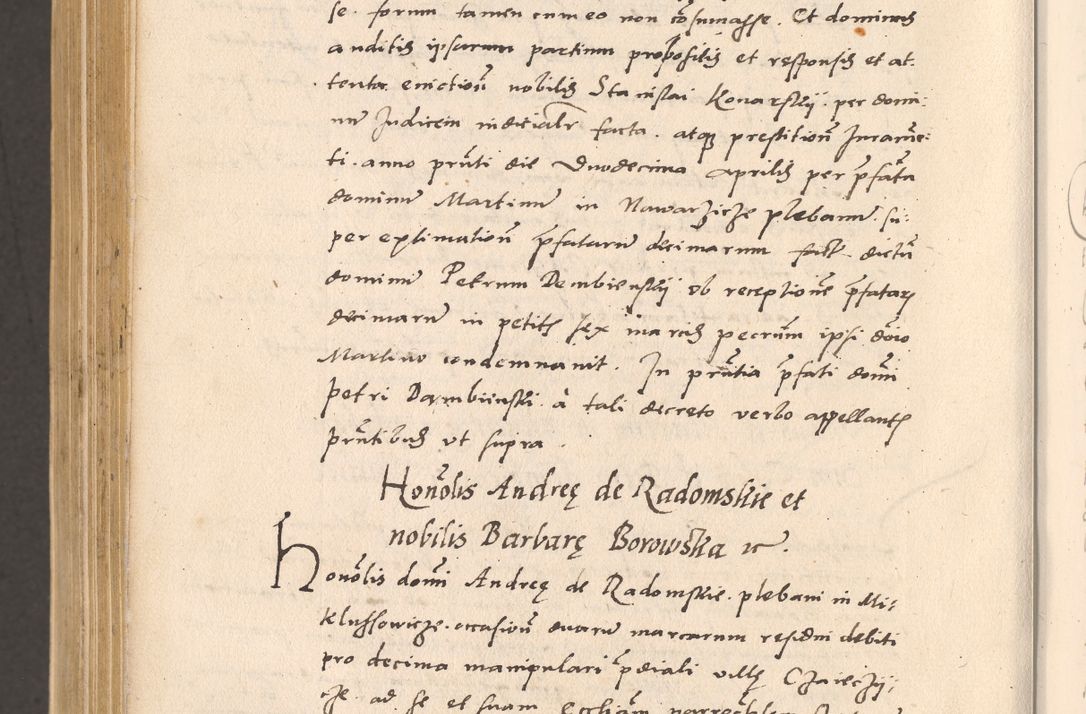 se. forum tamen cum eo non cōsumasse. Et dominus
auditis ipsarum partium propositis et responsis et at:
tenta evictioñ nobilis Stanislai Konarskij per domi:
nu Judicem indicialr facta. atq̃ prestitioñ Jurame:
ti. anno pruti die duodecima Aprilis per p̃fatu
dominu Martinu in Nawarzicze plebanu. su:
per extimatioñ p̃fataru decimarum fact. dictu
dominu Petrum Dembienskij ob receptione p̃fatarz
decimaru in petitꝭ sex marcis pecrum ipsi dōio
Martino condemnauit. In pruntia p̃fati domi
Petri Dambiinski. à tali decreto verbo appellantꝭ
prntibus ut supra.
Honōlis Andreę de Radomskie et
nobilis Barbarę Borowska ꝛc.
Honōlis domi Andreę de Radomskie. plebani in Mi:
klussowicze. occasioñ duaru marcarum residui debiti
pro decima manipulari p̃diali villę
cze ad se et suam Eccliam